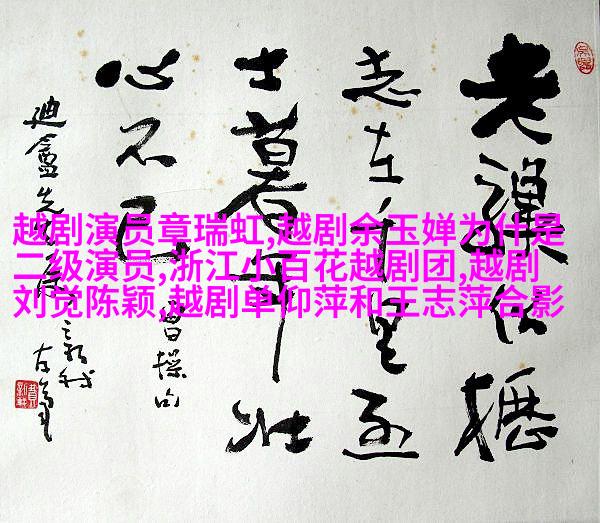 老驥伏櫪
志在千里烈
士暮年壮
心不已
曹操句
迪盦先生
越剧演员章瑞虹,越剧余玉婵为什是
二级演员,浙江小百花越剧团,越剧
刘觉陈颖,越剧单仰萍和王志萍合影